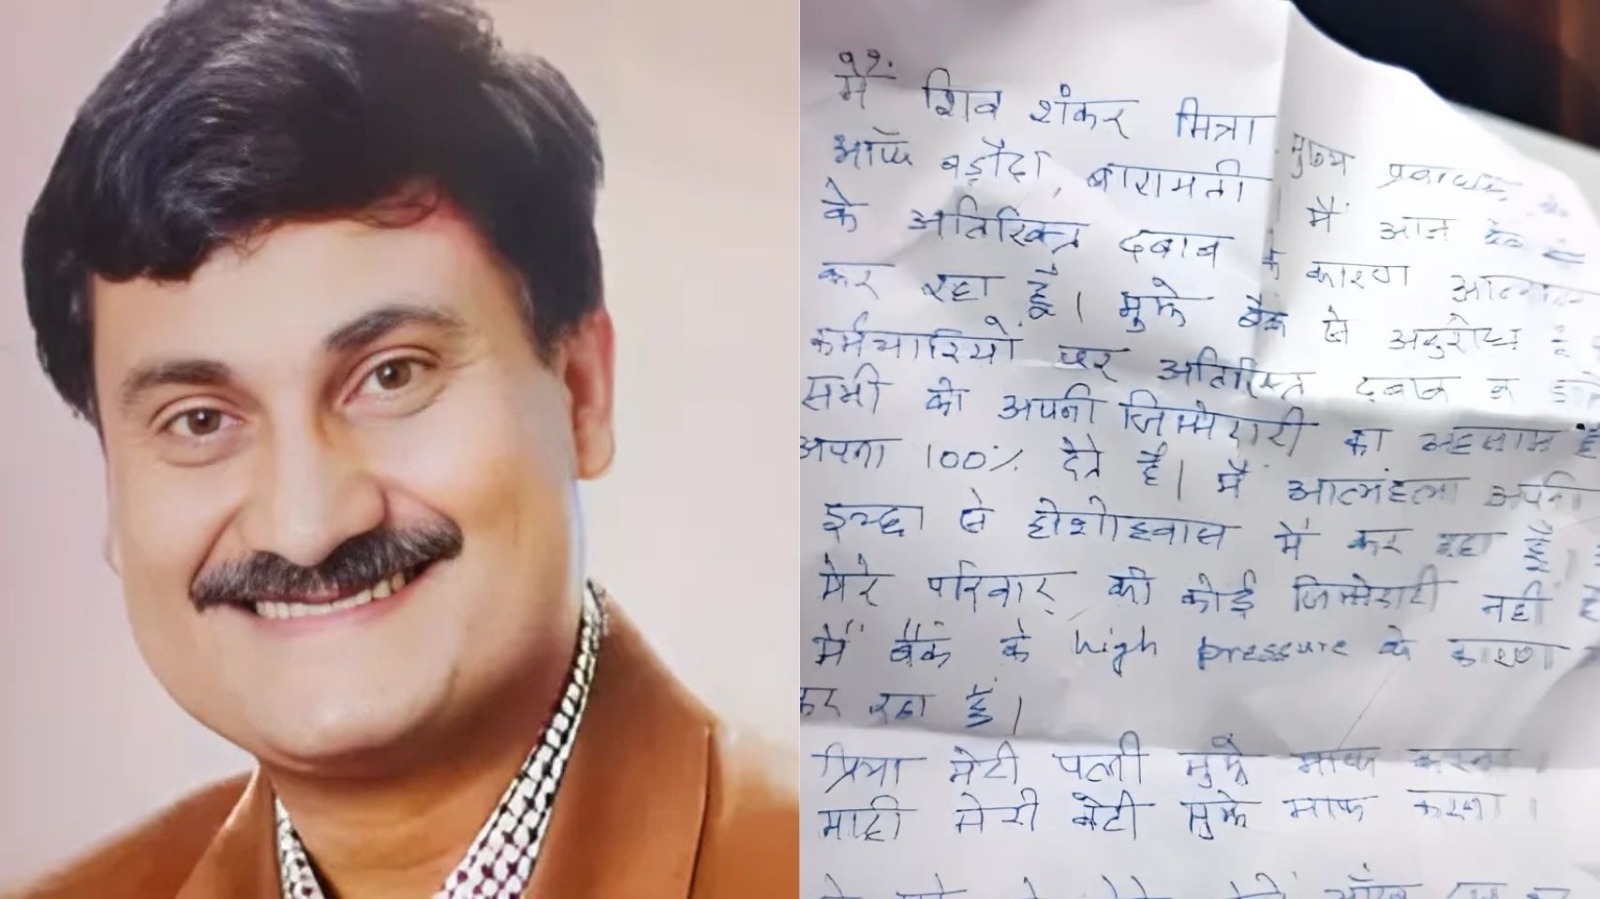 मैं शिव शंकर मित्रा मुख्य प्रबंधक,
ऑफ बड़ौदा, बारामती । मैं आज बैंक
के अतिरिक्त दबाव के कारण आत्महत्या
कर रहा हूँ । मुझे बैंक से अनुरोध है
कर्मचारियों पर अतिरिक्त दबाव न
सभी को अपनी जिम्मेदारी का अहसास है
अपना 100% देते है । मैं आत्महत्या अपनी
इच्छा से होशोहवास में कर रहा हूँ
मेरे परिवार की कोई जिम्मेदारी नहीं है
मैं बैंक के high pressure के कारण
कर रहा हूँ ।
प्रिया मेरी पत्नी मुझे माफ करना ।
माही मेरी बेटी मुझे माफ करना ।